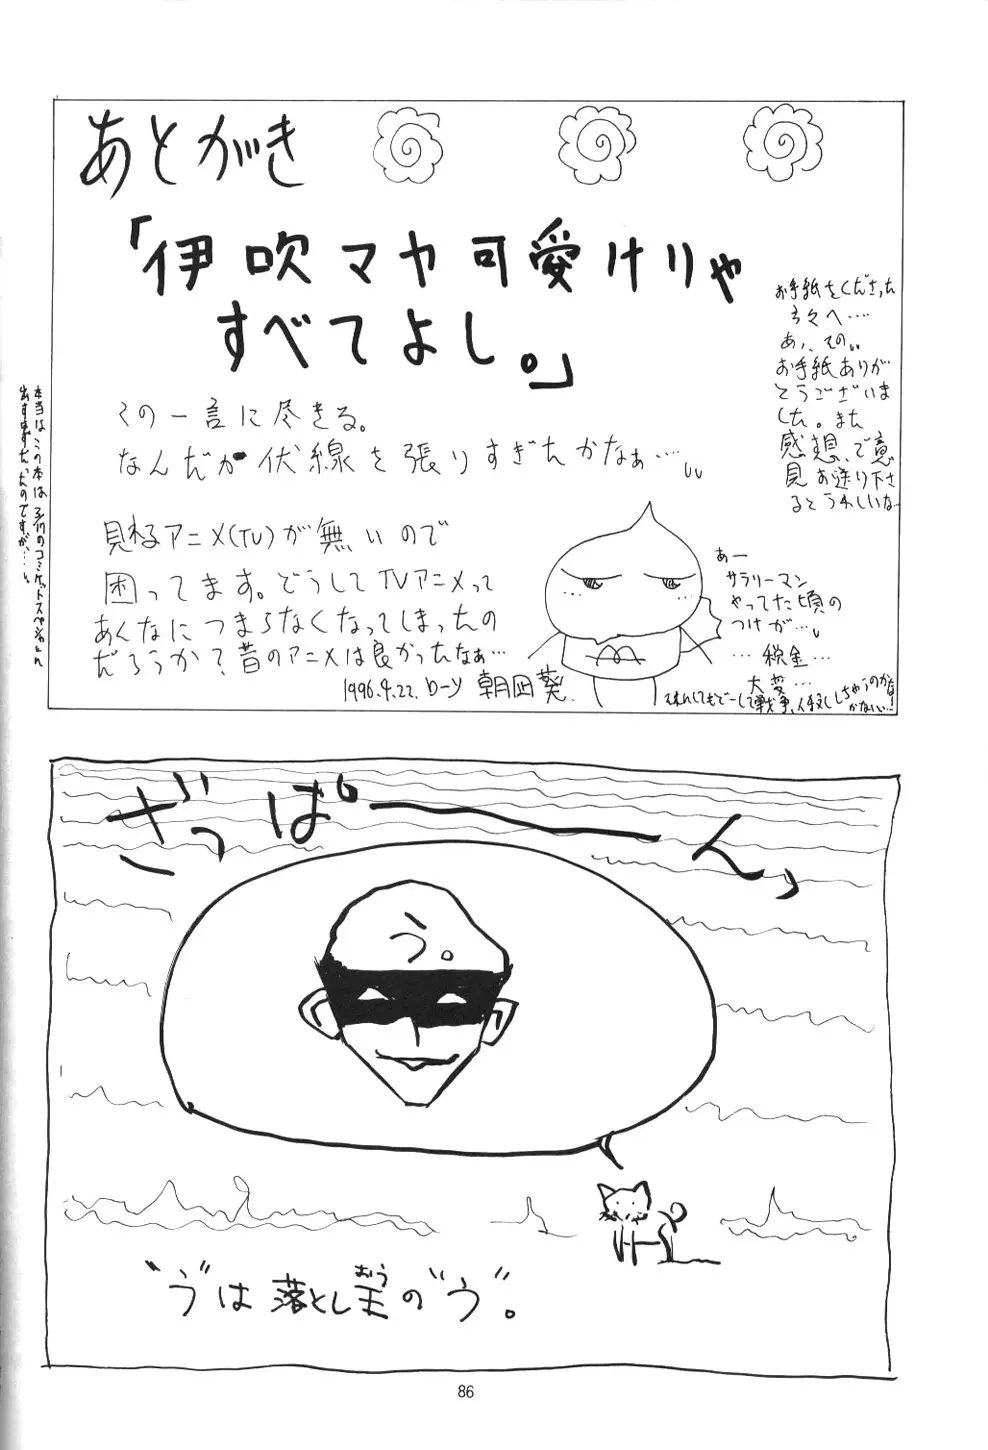 あとがき
「伊吹マヤ可愛けりゃ
すべてよし。」
この一言に尽きる。
なんだか伏線を張りすぎたかなぁ…
見れるアニメ(TV)が無いので
困ってます。どうしてTVアニメって
あんなにつまらなくなってしまったの
だろうか?昔のアニメは良かったなぁ…
1996.4.22. ローソ 朝凪葵.
お手紙をくださった
方々へ…
あ、その
お手紙ありが
とうございま
した。また
感想、ご意
見お送り下さ
るとうれしいな
あー
サラリーマン
やってた頃の
つけが…
…税金…
大変…
本当はこの本は3/17のコミケットスペシャルに
出すはずだったのですが…
ざっぱーーん
う。
"う"は落とし王の"う"。
おう
86